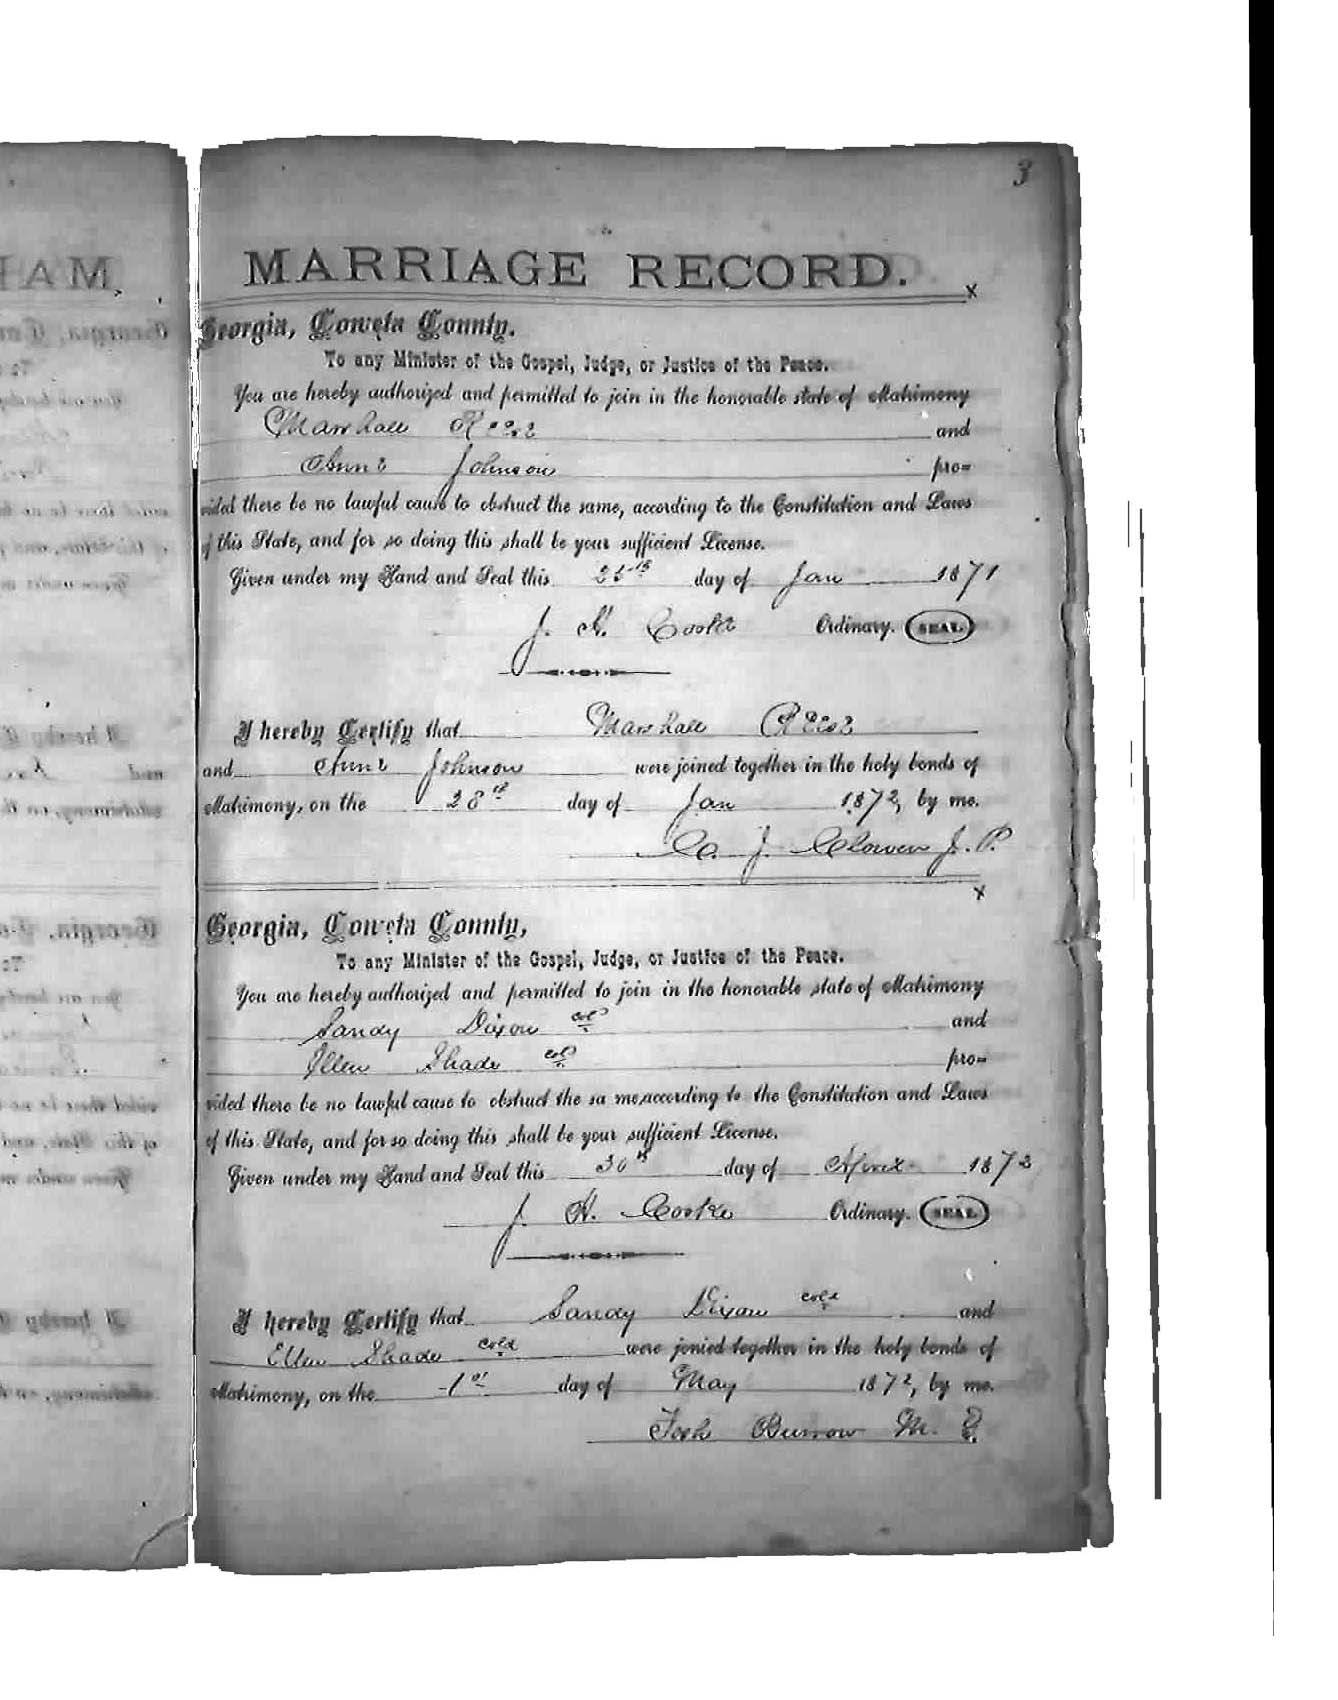 3
MARRIAGE RECORD.
x
Georgia, Coweta County.
To any Minister of the Gospel, Judge, or Justice of the Peace.
You are hereby authorized and permitted to join in the honorable state of Matrimony
Marshall and
Johnson pro=
vided there be no lawful cause to obstruct the same, according to the Constitution and Laws
of this State, and for so doing this shall be your sufficient License.
Given under my Hand and Seal this 25th day of Jan 1871
J. H. Cooke Ordinary. SEAL
I hereby Certify that Marshall
and Johnson were joined together in the holy bonds of
Matrimony, on the 28th day of Jan 1872, by me.
J. J. P.
x
Georgia, Coweta County,
To any Minister of the Gospel, Judge, or Justice of the Peace.
You are hereby authorized and permitted to join in the honorable state of Matrimony
Sandy Dixon cold and
Ellen Shade cold pro=
vided there be no lawful cause to obstruct the sa me, according to the Constitution and Laws
of this State, and for so doing this shall be your sufficient License.
Given under my Hand and Seal this 30th day of April 1872
J. H. Cooke Ordinary. SEAL
I hereby Certify that Sandy Dixon cold and
Ellen Shade cold were jonied together in the holy bonds of
Matrimony, on the 1st day of May 1872, by me.
Burrow M. G.